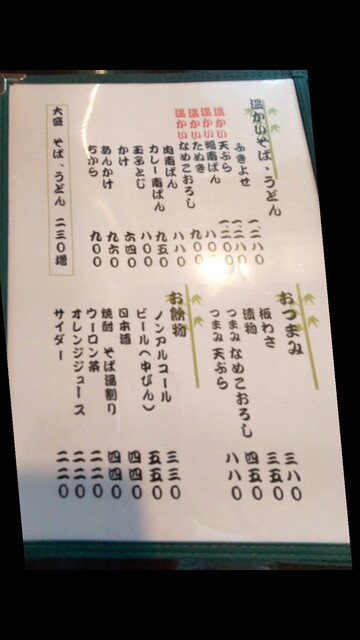 温かいそば・うどん
ふきよせ 一、二八〇
温かい天ぷら 一、二八〇
温かい鴨南ばん 一、二〇〇
温かいたぬき 八〇〇
温かいなめこおろし 九〇〇
肉南ばん 八八〇
カレー南ばん 九五〇
玉子とじ 八〇〇
かけ 六四〇
あんかけ 九六〇
ちから 九〇〇
大盛 そば、うどん 二三〇増
おつまみ
板わさ 三八〇
漬物 三五〇
つまみ なめこおろし 四五〇
つまみ 天ぷら 八八〇
お飲物
ノンアルコール 三三〇
ビール(中びん) 五五〇
日本酒 四四〇
焼酎 そば湯割り 四四〇
ウーロン茶 二二〇
オレンジジュース 二二〇
サイダー 二二〇